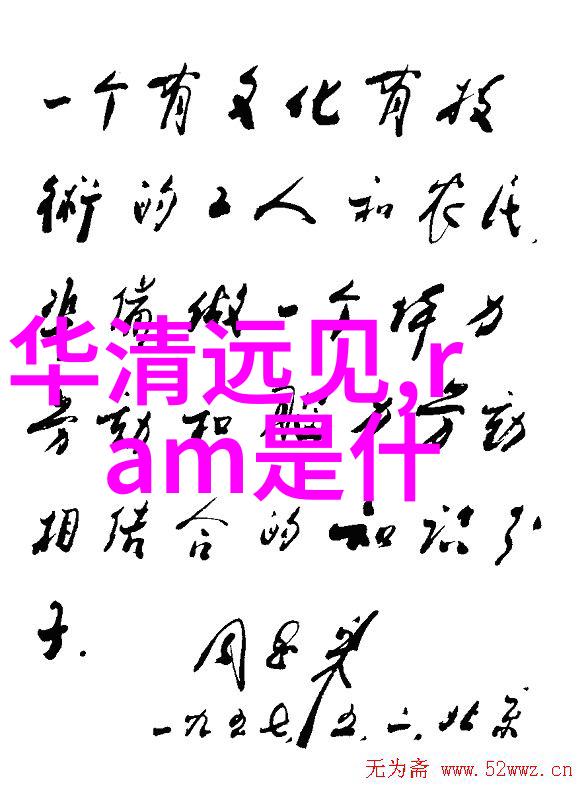 一个有文化有技
術的工人和农民，
准備做一个体力
华清远见,r
劳动和脑力劳动
am是什
相结合的知识分
子.
周恩来
一九五七，五，二，北京
无为斋 www.52wwz.cn